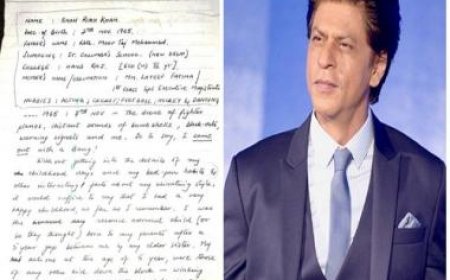 NAME : SHAH RUKH KHAN
DATE OF BIRTH : 2ND NOV 1965.
FATHER'S NAME : Late. Meer Taj Mohammed.
SCHOOLING : ST. COLUMBA'S SCHOOL. (NEW DELHI)
COLLEGE : HANS RAJ.
MOTHER'S NAME / OCCUPATION : Mrs. LATEEF FATIMA /
1st class Executive Magistrate
HOBBIES : ACTING, CRICKET, FOOTBALL, HOCKEY & DANCING
1965 : 2ND NOV - the drone of fighter
planes, distant sounds of bomb shells, black-outs,
warning signals and me. So to say, I came
out with a bang!
Without getting into the details of my
childhood days and my bad habits &
other interesting parts about my
it would suffice to say that I had a very
happy childhood, as far as I remember. I was
the second child (or
so they thought) born to my parents after a
5 year gap between me & my elder sister. My
at the age of 5 years, were those
of any other kid down the block